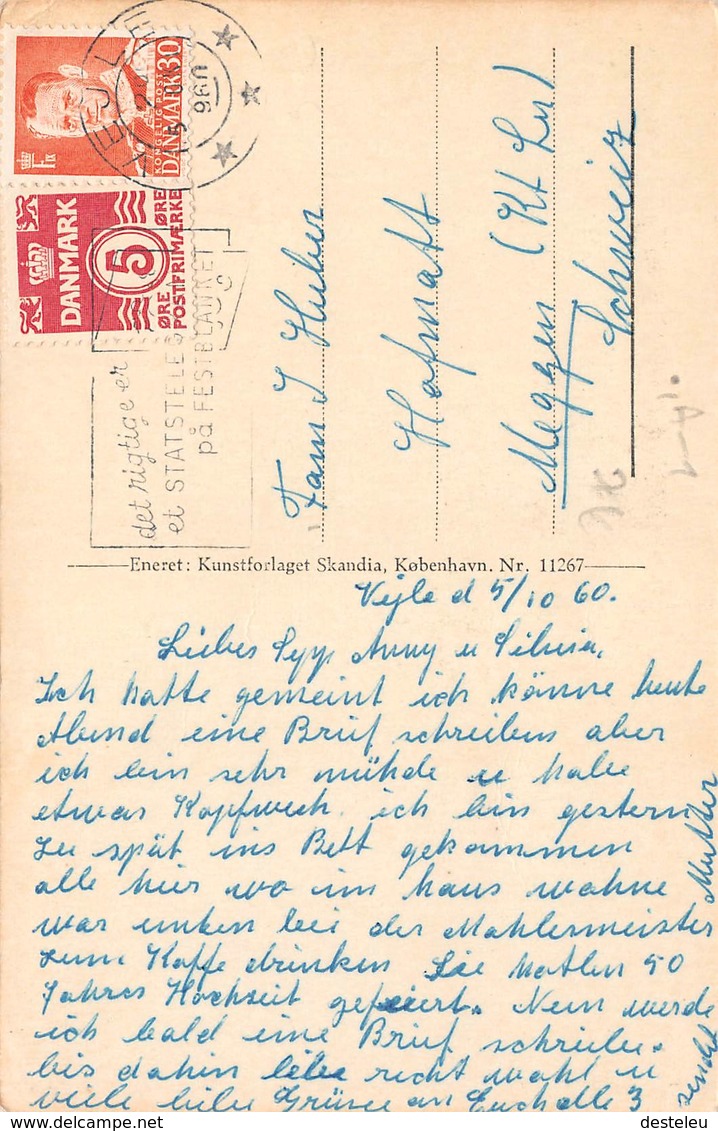 VEJLE
5 10 960
KONGELIG POST
DANMARK 30
DANMARK
5
ØRE ØRE
POSTFRIMÆRKE
det rigtige er
et STATSTELE
på FESTBLANKET
Fam J Huber
Hofmatt
Meggen (Kt Lu)
Schweiz
Eneret: Kunstforlaget Skandia, København. Nr. 11267
Vejle d 5/10 60.
Liebes Sepp Anny u Silvia,
Ich hatte gemeint ich könne heute
Abend eine Brief schreiben aber
ich bin sehr mühde u habe
etwas Kopfweh. ich bin gestern
zu spät ins Bett gekommen
alle hier wo im haus wohne
war unten bei der Mahlermeister
zum Kaffe drinken Sie hatten 50
Jahres Hochzeit gefeiert. Nein werde
ich bald eine Brief schreibe.
bis dahin lebe recht wohl u
viele liebe Grüsse an Euch alle 3
sendet Mutter
desteleu